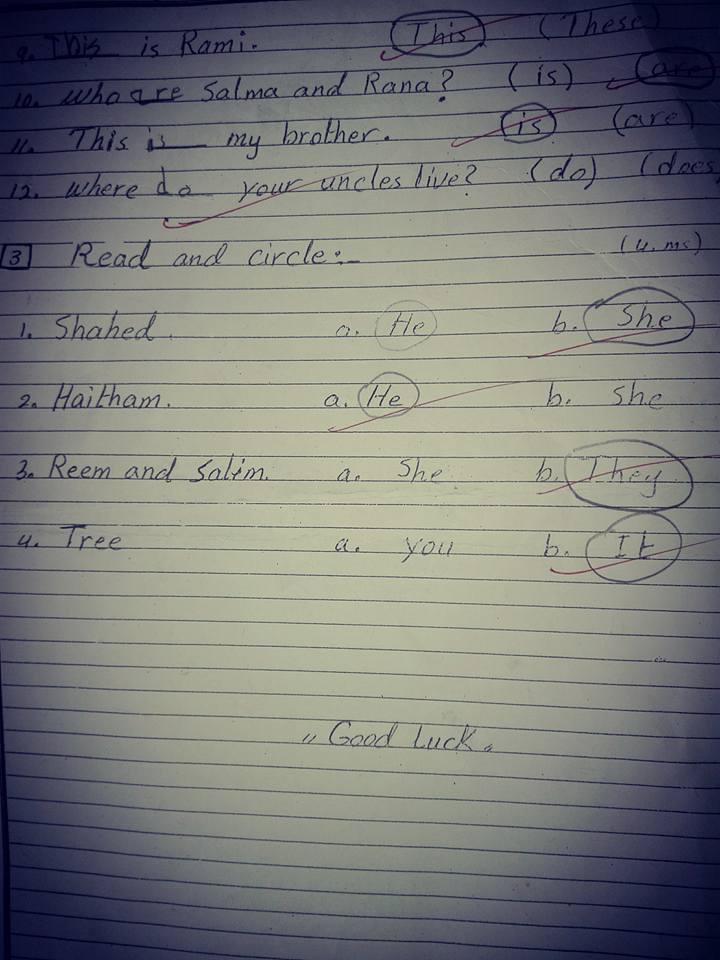 9. This is Rami. (This) (These)
10. who are Salma and Rana? (is) (are)
11. This is my brother. (is) (are)
12. where do your uncles live? (do) (does
3 Read and circle:- (4.ms)
1. Shahed. a. He b. She
2. Haitham. a. He b. She
3. Reem and Salim. a. She b. They
4. Tree a. you b. It
"Good Luck"